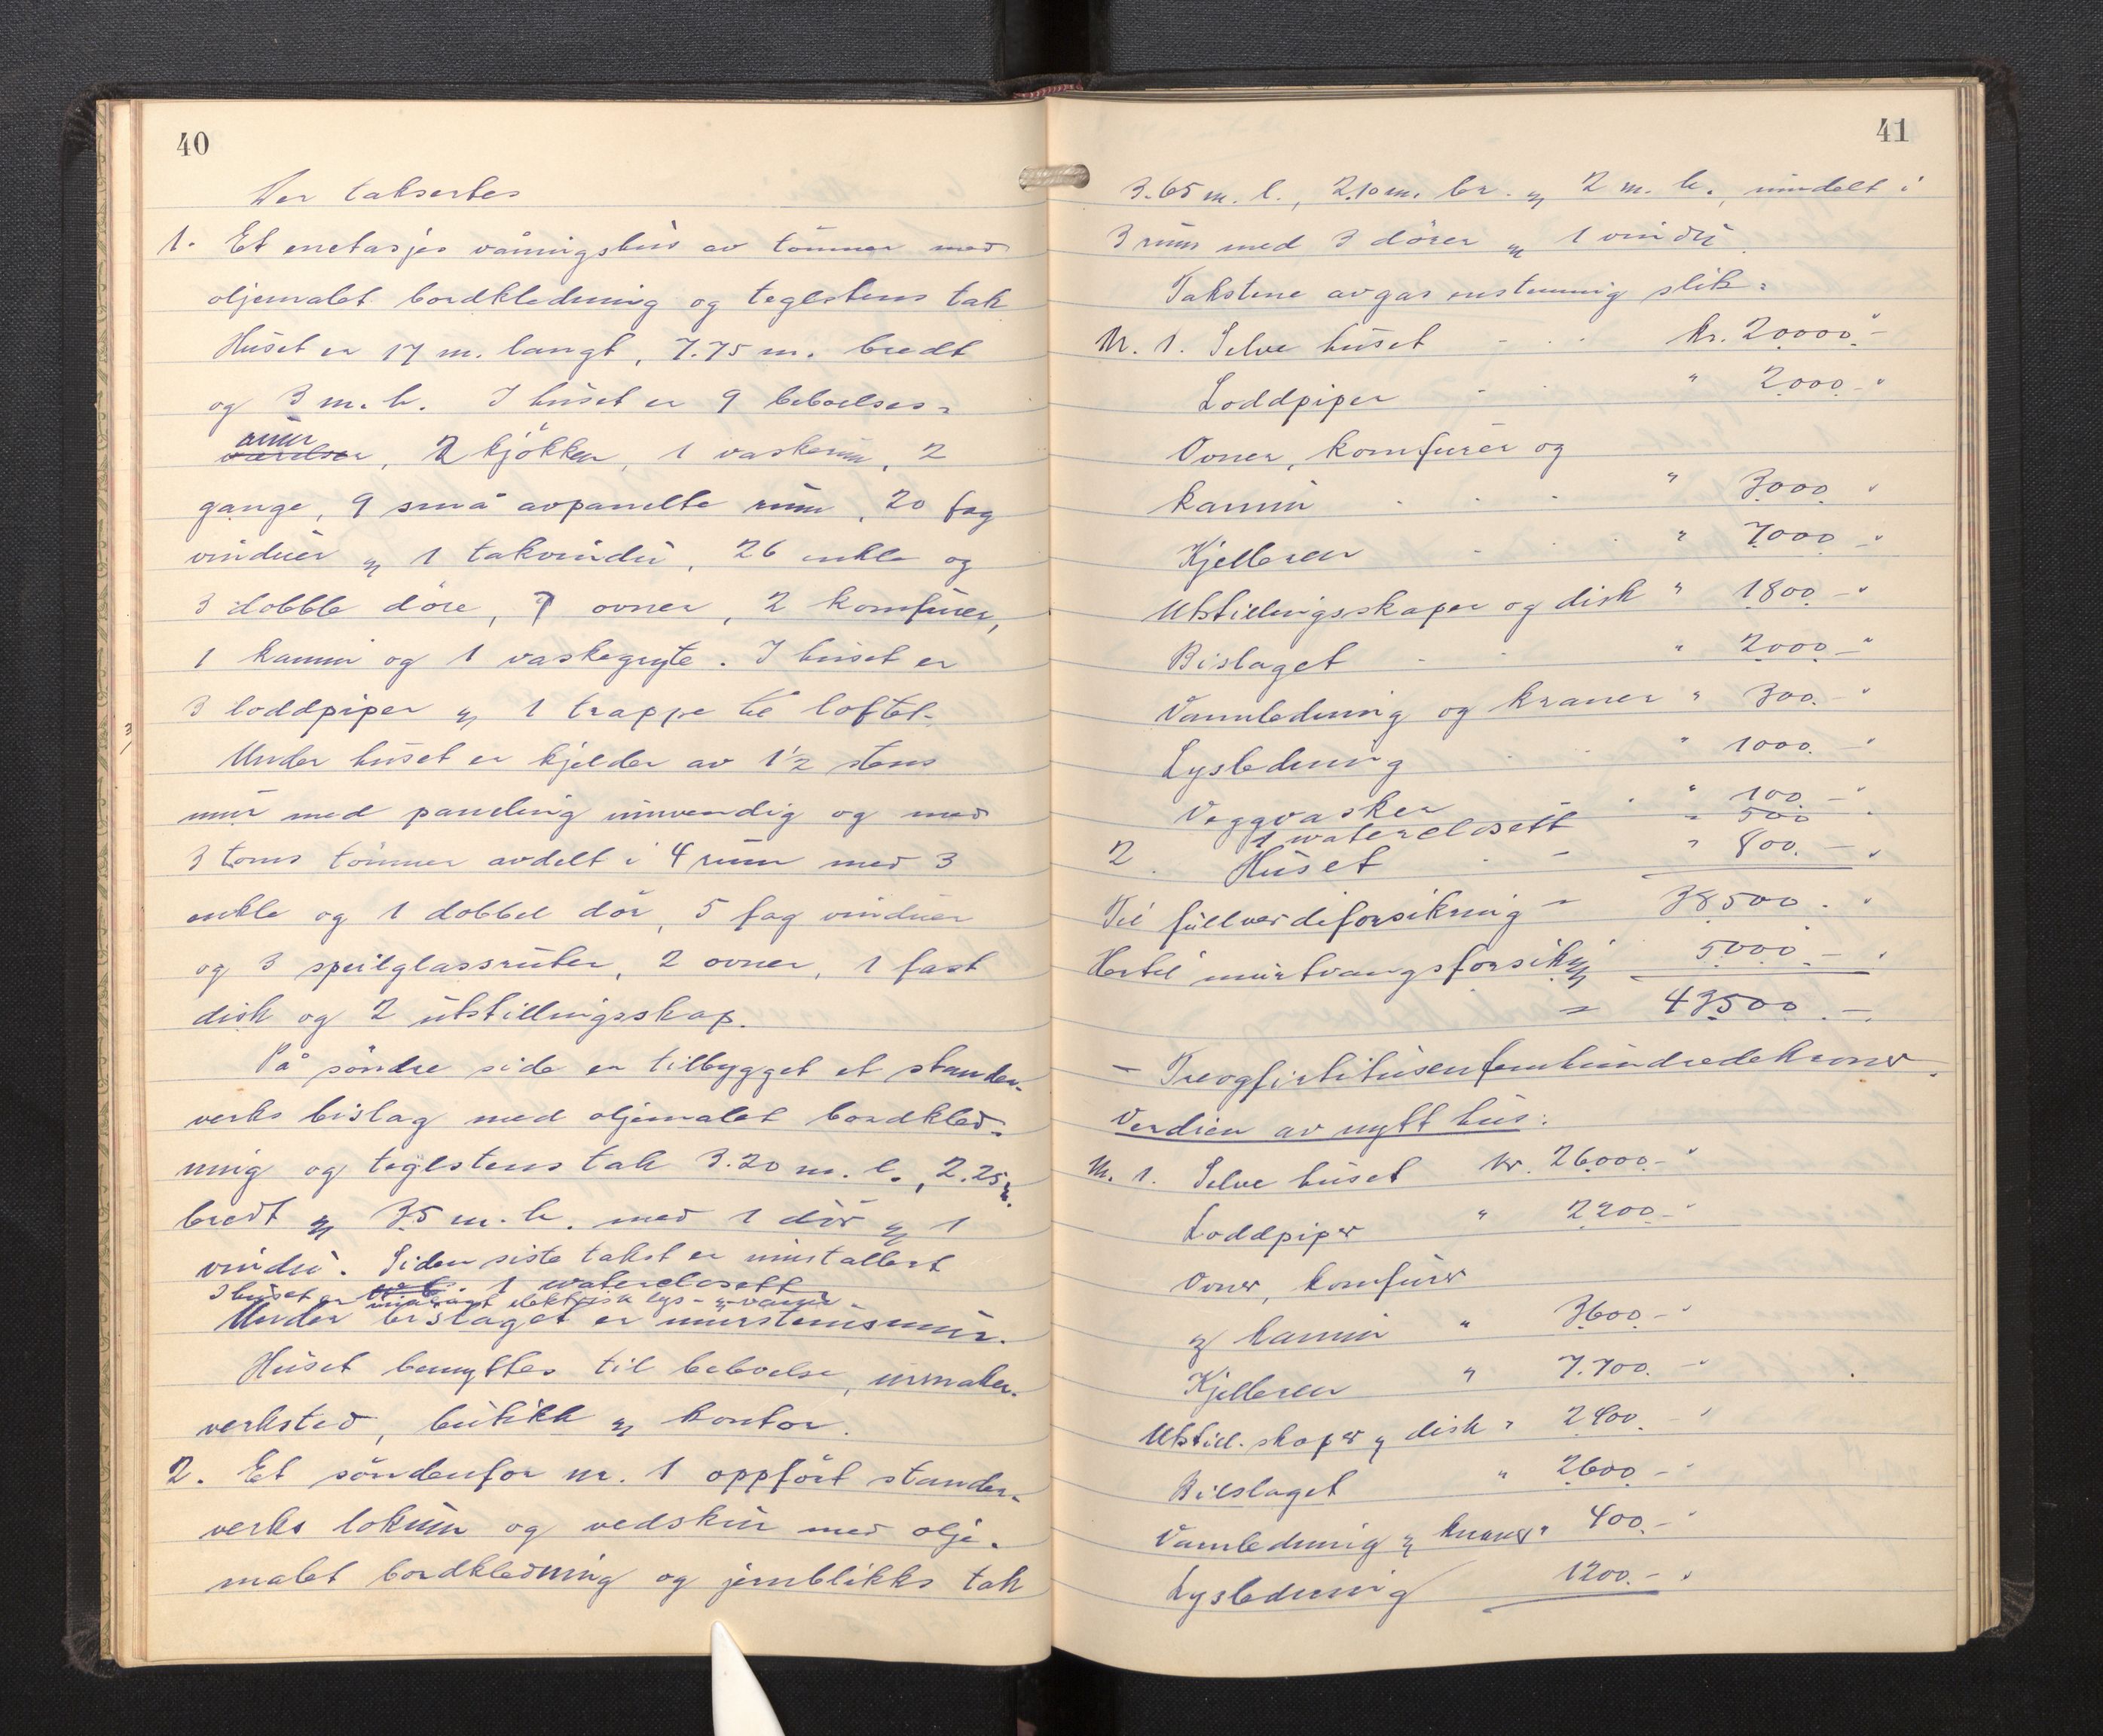 40
Der taksertes
1. Et enetasjes våningshus av tömmer med
oljemalet bordkledning og teglstens tak
Huset er 17 m. langt, 7.75 m. bredt
og 3 m. h. I huset er 9 beboelses-
rum
værelser, 2 kjökken, 1 vaskerum, 2
gange, 9 små avpanelte rum, 20 fag
vinduer og 1 takvindu, 26 enkle og
3 dobble döre, 7 ovner, 2 komfurer,
1 kamin og 1 vaskegryte. I huset er
3 loddpiper og 1 trappe til loftet.
Under huset er kjelder av 1½ stens
mur med paneling innvendig og med
3 toms tömmer avdelt i 4 rum med 3
enkle og 1 dobbel dör, 5 fag vinduer
og 3 speilglassruter, 2 ovner, 1 fast
disk og 2 utstillingsskap.
På söndre side er tilbygget et stander-
verks bislag med oljemalet bordkled-
ning og teglstens tak 3.20 m. l., 2.25 m.
bredt og 3.5 m. h. med 1 dör og 1
vindu. Siden siste takst er innstallert
1 waterclosett
I huset er innlagt elektrisk lys- og vann.
Under bislaget er murstensmur.
Huset benyttes til beboelse, urmaker-
verksted, butikk og kontor.
2. Et söndenfor nr. 1 oppfört stander-
verks lokum og vedskur med olje-
malet bordkledning og jernblikks tak
41
3.65 m. l., 2.10 m. br. og 2 m. h., inndelt i
3 rum med 3 dörer og 1 vindu
Takstene avgas enstemmig slik:
Nr. 1. Selve huset kr. 20000.-
Loddpiper " 2000.-
Ovner, komfurer og
kamin " 3000
Kjelleren " 7000 -
Utstillingsskaper og disk " 1800 -
Bislaget " 2000 -
Vannledning og kraner " 300.-
Lysledning " 1000. -
Veggvasker " 100 -
1 waterclosett " 500
2. Huset " 800. -
Til fullverdiforsikring - 38500.
Hertil murtvangsforsikring 5000.-
= 43500.-
- Treogfirtitusenfemhundredekroner.
Verdien av nytt hus:
Nr. 1. Selve huset kr. 26000.-
Loddpiper " 2200.-
Ovner, komfurer
og kamin " 3600.-
Kjelleren " 7.700. -
Utstill. skaper og disk " 2400. -
Bislaget " 2600 -
Vannledning og kraner " 400.-
Lysledning 1200.-